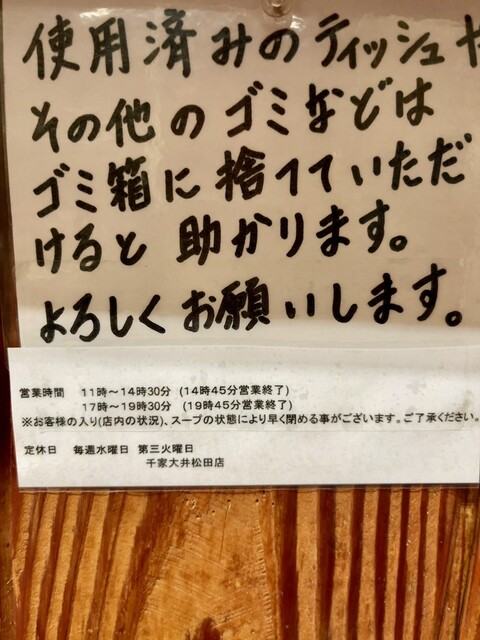 使用済みのティッシュや
その他のゴミなどは
ゴミ箱に捨てていただ
けると助かります。
よろしくお願いします。
営業時間　11時～14時30分　(14時45分営業終了)
17時～19時30分　(19時45分営業終了)
※お客様の入り(店内の状況)、スープの状態により早く閉める事がございます。ご了承ください。
定休日　毎週水曜日　第三火曜日
千家大井松田店